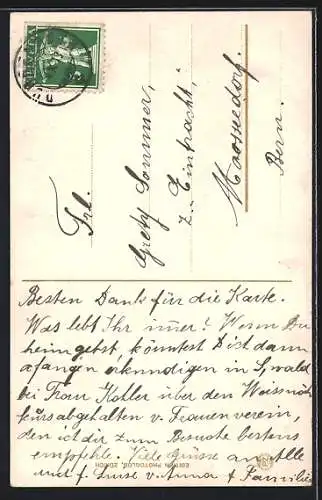 Frl.
Grety Sommer,
z. Eintracht,
Moosseedorf.
Bern.
Besten Dank für die Karte.
Was lebt Ihr immer? Wenn Du
heimgehst, könntest Dich dann
anfangen erkundigen in
bei Frau Kohler über den Weissnäh
kurs abgehalten v. Frauenverein,
den ich dir zum Besuche bestens
empfehle. Viele Grüsse an Alle
und f. Luise v. Anna & Familie
EDITION PHOTOGLOB, ZÜRICH
HELVETIA